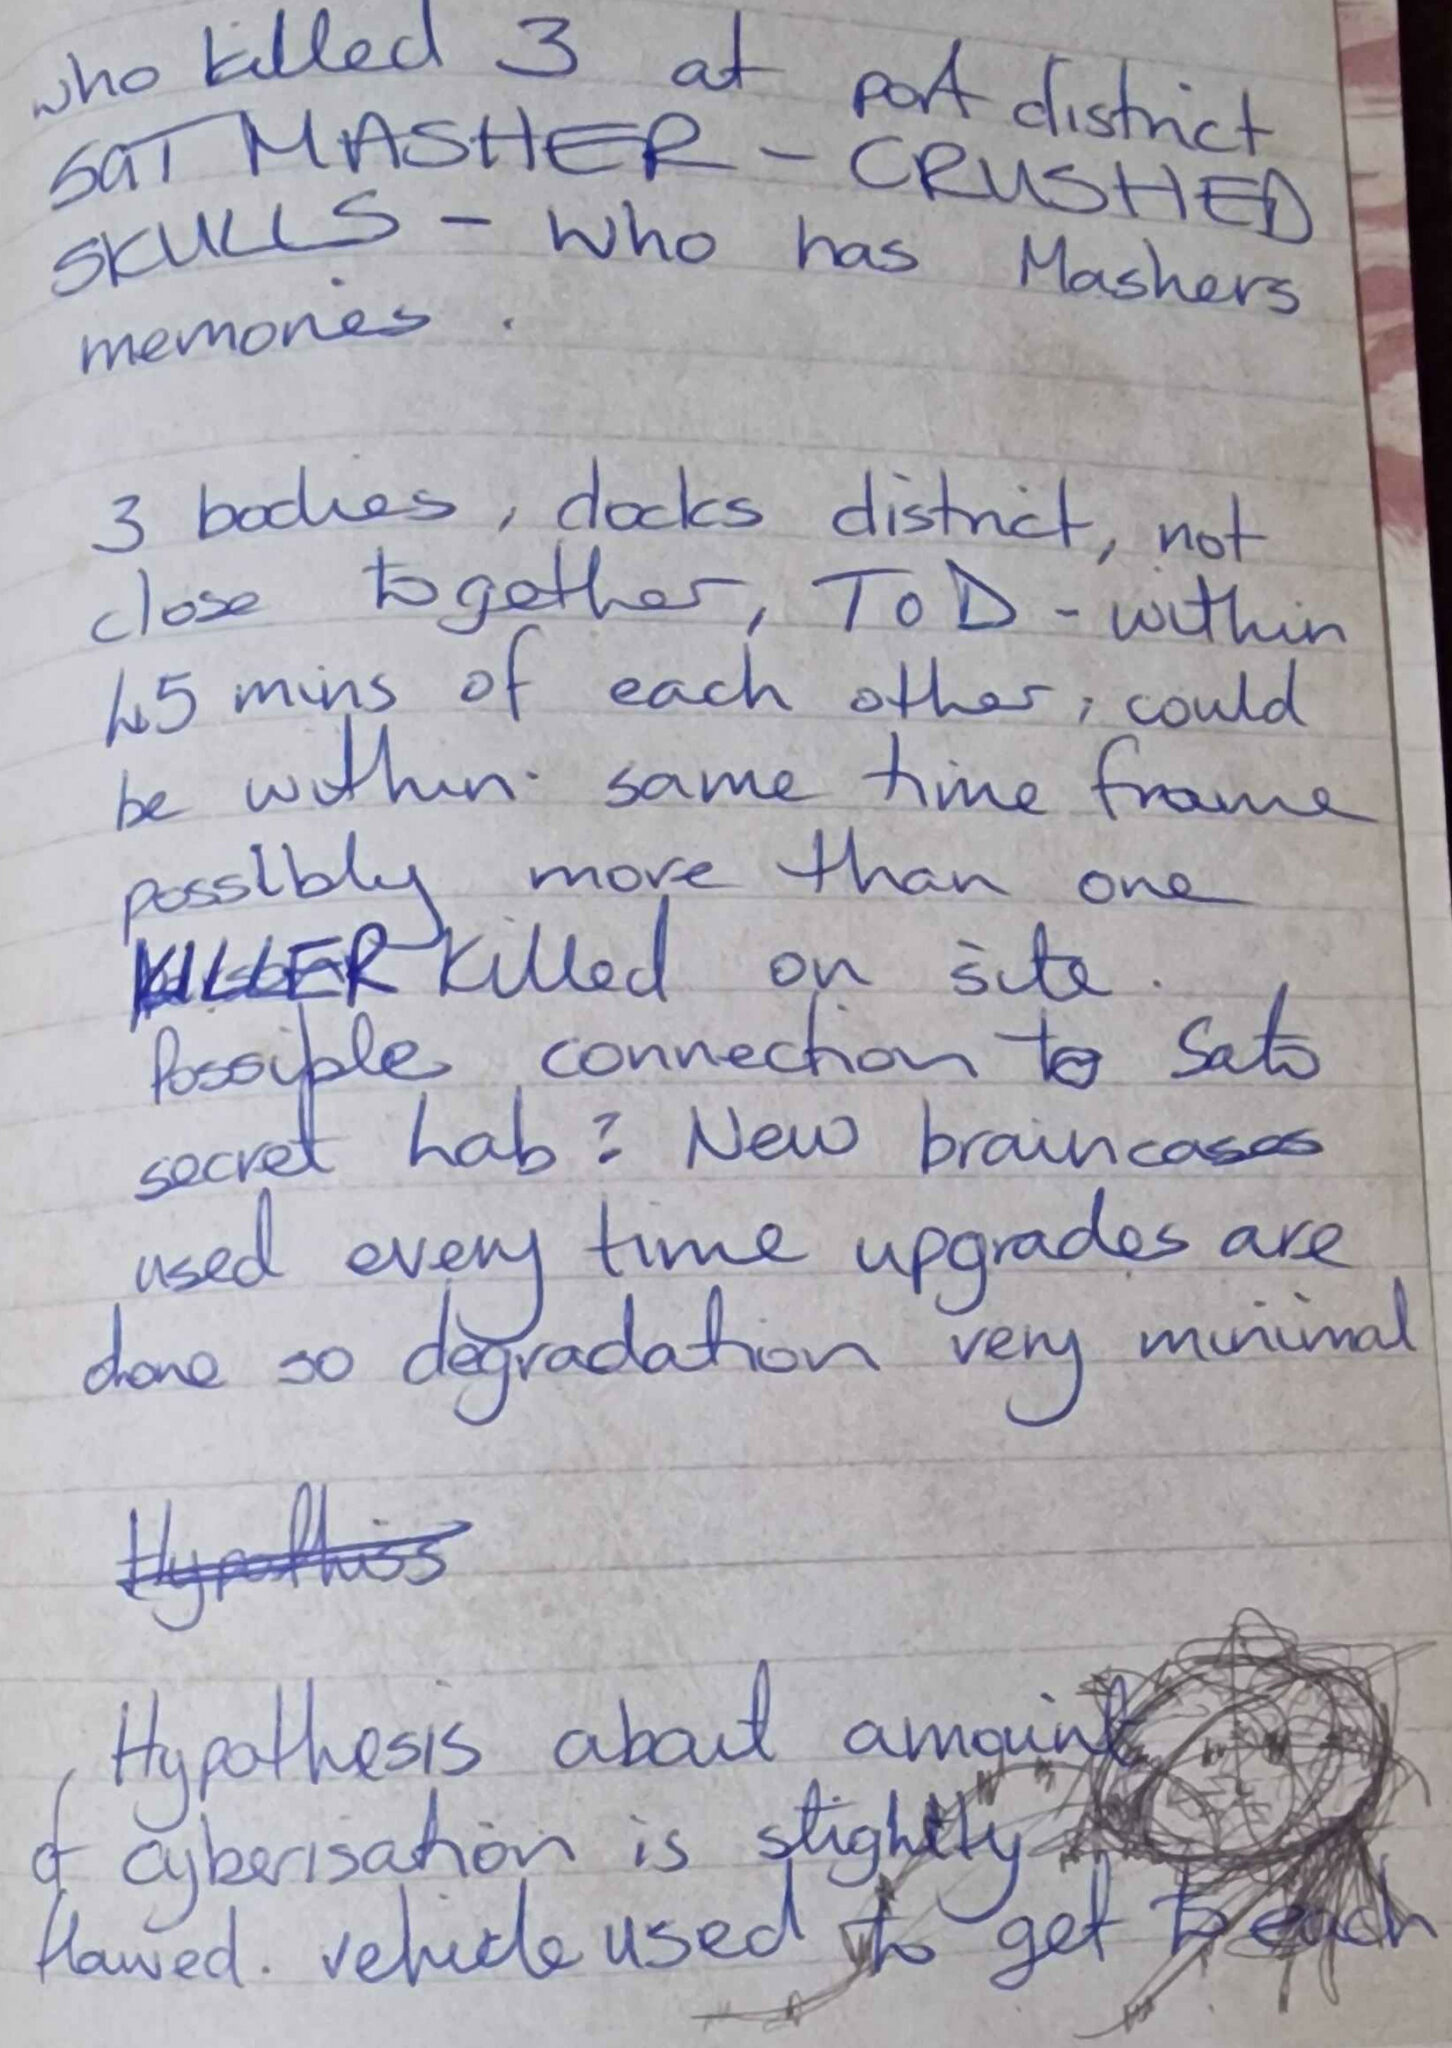 who killed 3 at port district
SGT MASHER - CRUSHED
SKULLS - who has Mashers
memories.
3 bodies, docks district, not
close together, ToD - within
45 mins of each other; could
be within same time frame
possibly more than one
KILLER killed on site.
Possible connection to Sato
secret Lab? New braincases
used every time upgrades are
done so degradation very minimal
Hypothiss
Hypothesis about amount
of cyberisation is slightly
flawed. vehicle used to get to each